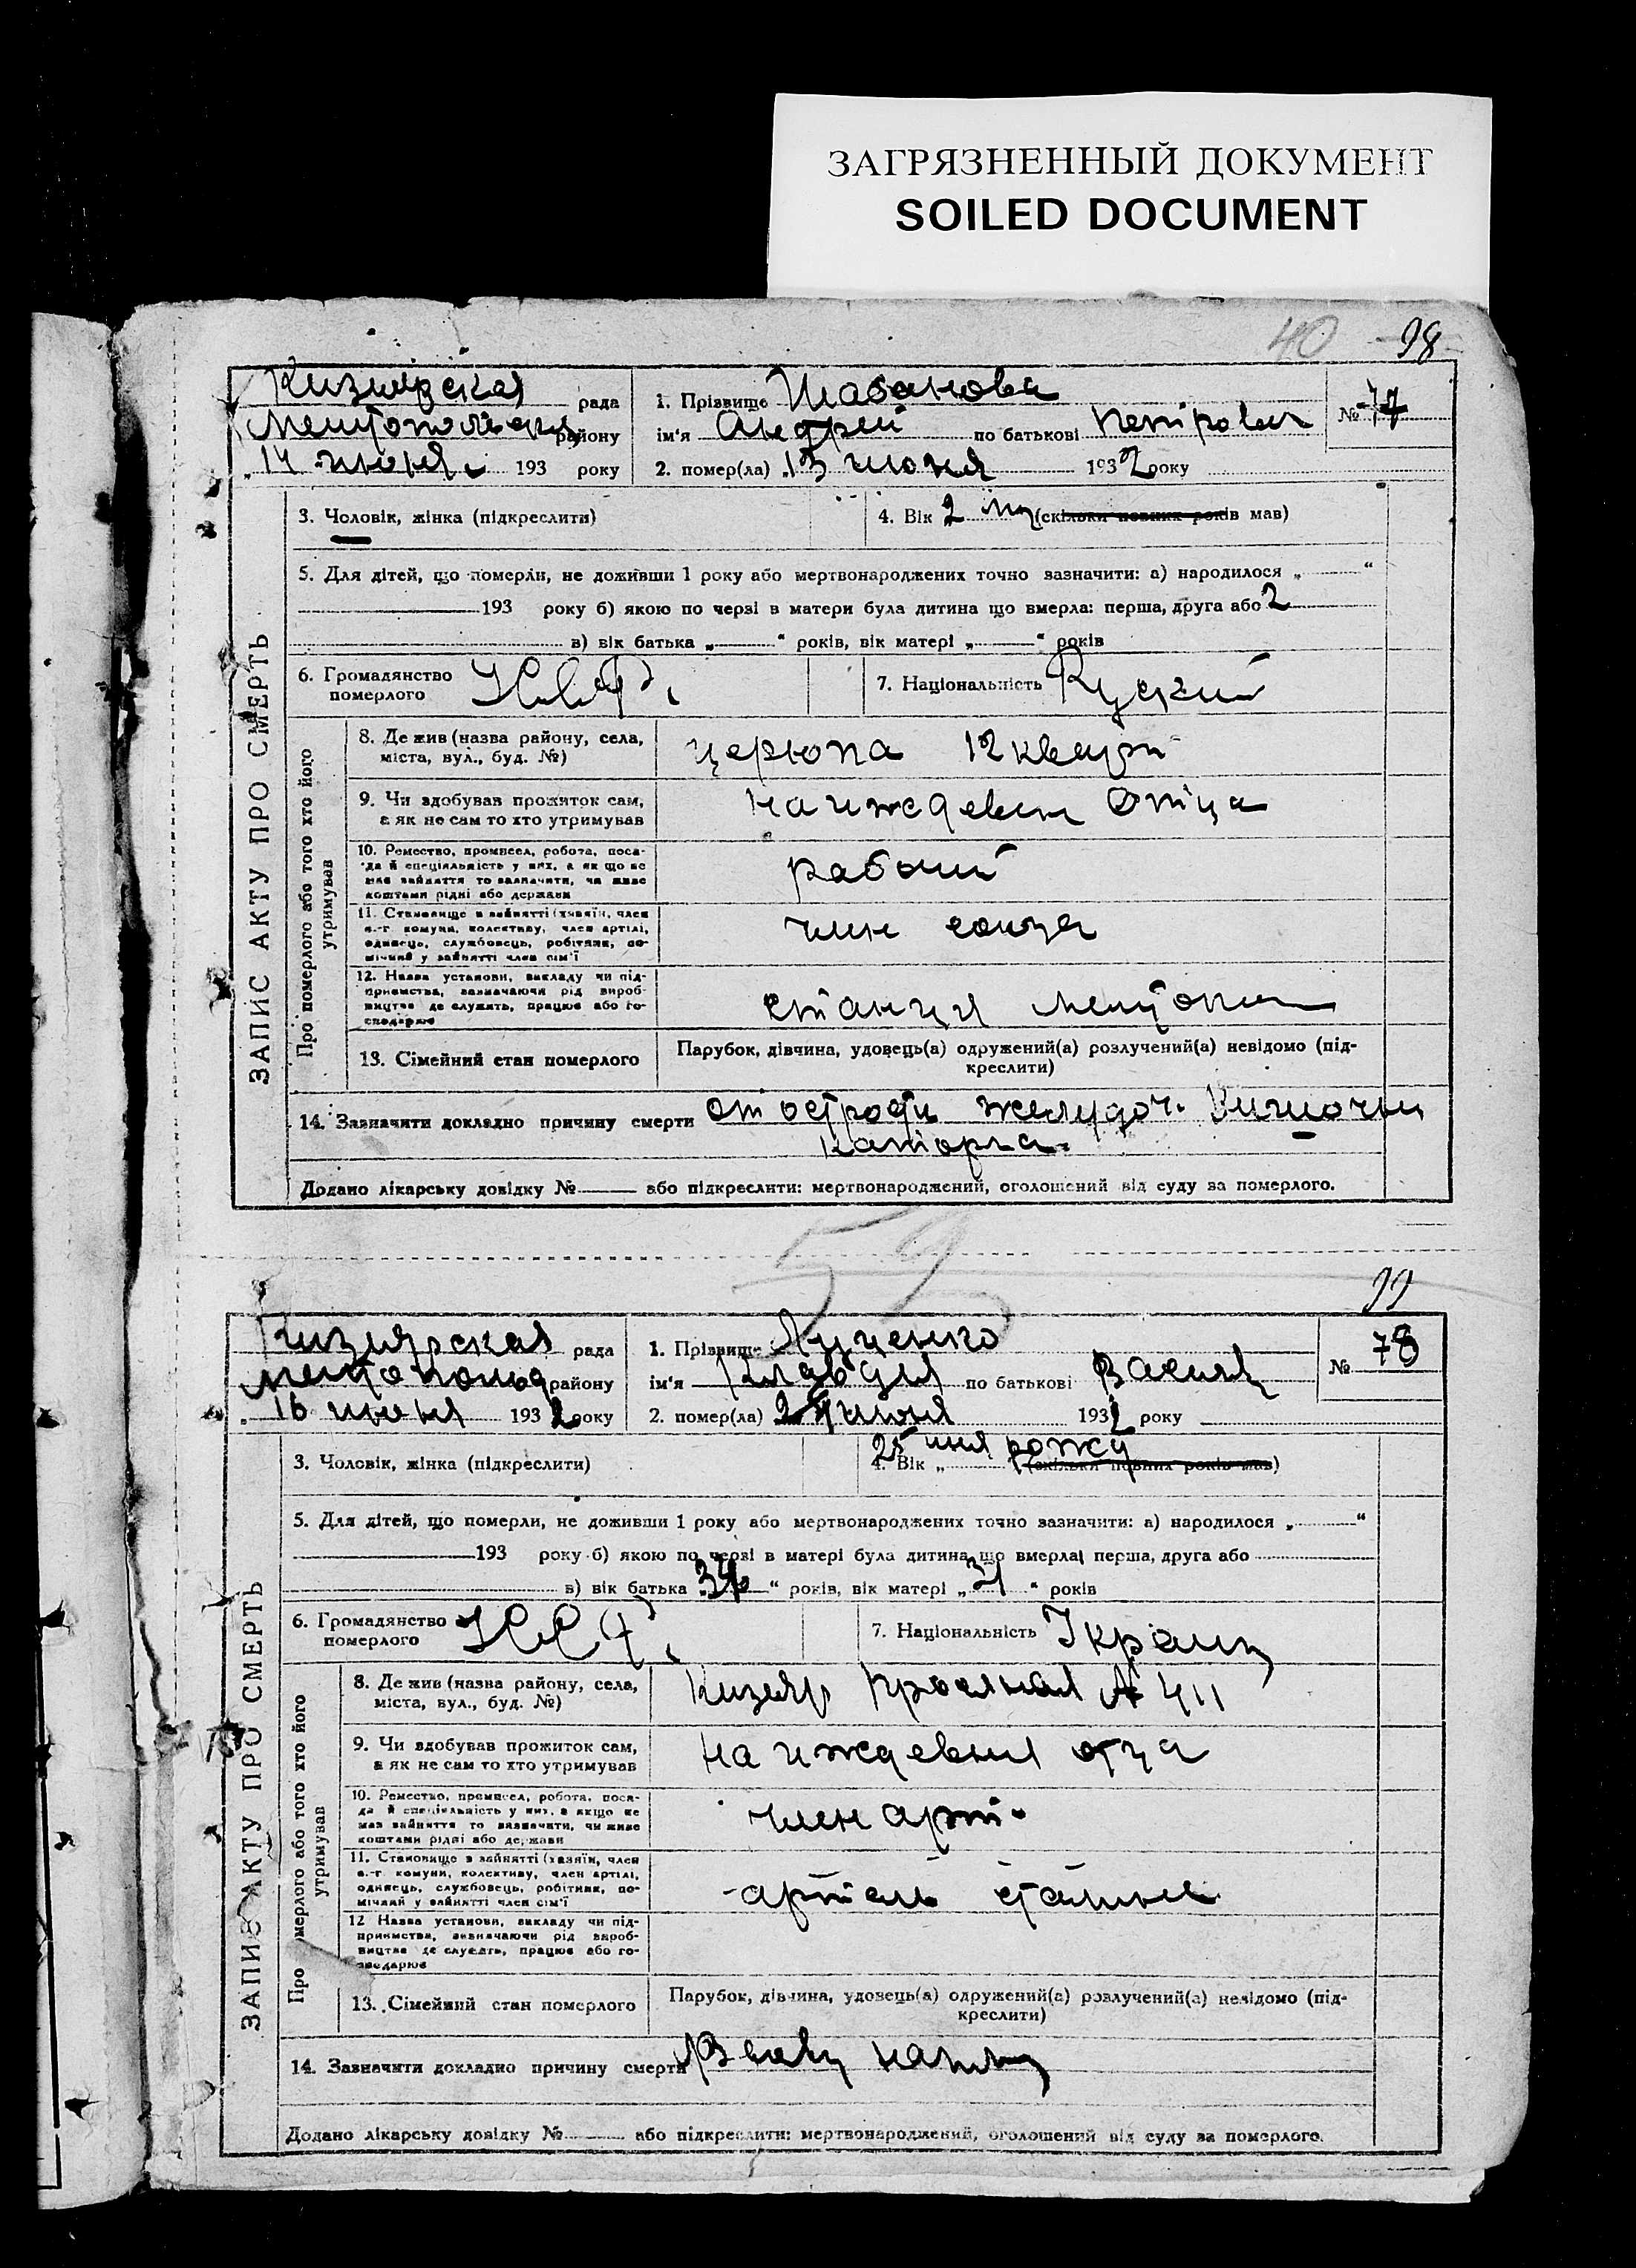 ЗАГРЯЗНЕННЫЙ ДОКУМЕНТ
SOILED DOCUMENT
40 98
Кизиярская рада
району
14 июня 193 року
1. Прізвище Шабанова
ім'я Андрей по батькові
2. помер(ла) 13 июня 1932 року
№ 77
ЗАПИС АКТУ ПРО СМЕРТЬ
3. Чоловік, жінка (підкреслити)
4. Вік 2 (скільки повних років мав)
5. Для дітей, що померли, не доживши 1 року або мертвонароджених точно зазначити: а) народилося „ “
193 року б) якою по черзі в матери була дитина що вмерла: перша, друга або 2
в) вік батька „ “ років, вік матері „ “ років
6. Громадянство
померлого
7. Національність Руский
Про померлого або того хто його
утримував
8. Де жив (назва району, села,
міста, вул., буд. №)
12
9. Чи здобував прожиток сам,
а як не сам то хто утримував
на иждевен Отца
10. Ремество, промисел, робота, поса-
да й спеціяльність у них, а як що не
мав зайняття то зазначити, чи живе
коштами рідні або держави
рабочий
11. Становище в зайнятті (хазяїн, член
с.-г. комуни, колективу, член артілі,
одинець, службовець, робітник, по-
мічний у зайнятті член сім'ї
член союза
12. Назва установи, викладу чи під-
приємства, зазначаючи рід вироб-
ництва де служить, працює або го-
сподарює
станция
13. Сімейний стан померлого
Парубок, дівчина, удовець(а) одружений(а) розлучений(а) невідомо (під-
креслити)
14. Зазначити докладно причину смерти от желудоч.
Додано лікарську довідку № або підкреслити: мертвонароджений, оголошений від суду за померлого.
52
99
Кизиярская рада
району
16 июня 1932 року
1. Прізвище Луценко
ім'я Клавдия по батькові
2. помер(ла) июня 1932 року
№ 78
ЗАПИС АКТУ ПРО СМЕРТЬ
3. Чоловік, жінка (підкреслити)
25
4. Вік „ (скільки повних років мав)
5. Для дітей, що померли, не доживши 1 року або мертвонароджених точно зазначити: а) народилося „ “
193 року б) якою по черзі в матері була дитина що вмерла: перша, друга або
в) вік батька „ “ років, вік матері „31“ років
6. Громадянство
померлого
7. Національність Украин
Про померлого або того хто його
утримував
8. Де жив (назва району, села,
міста, вул., буд. №)
Кизияр
9. Чи здобував прожиток сам,
а як не сам то хто утримував
на иждевения отца
10. Ремество, промисел, робота, поса-
да й спеціяльність у них, а якщо не
мав зайняття то зазначити, чи живе
коштами рідні або держави
член арт.
11. Становище в зайнятті (хазяїн, член
с.-г. комуни, колективу, член артілі,
одинець, службовець, робітник, по-
мічний у зайнятті член сім'ї
артель
12 Назва установи, викладу чи під-
приємства, зазначаючи рід вироб-
ництва де служить, працює або го-
сподарює
13. Сімейний стан померлого
Парубок, дівчина, удовець(а) одружений(а) розлучений(а) невідомо (під-
креслити)
14. Зазначити докладно причину смерти
Додано лікарську довідку № або підкреслити: мертвонароджений, оголошений від суду за померлого.